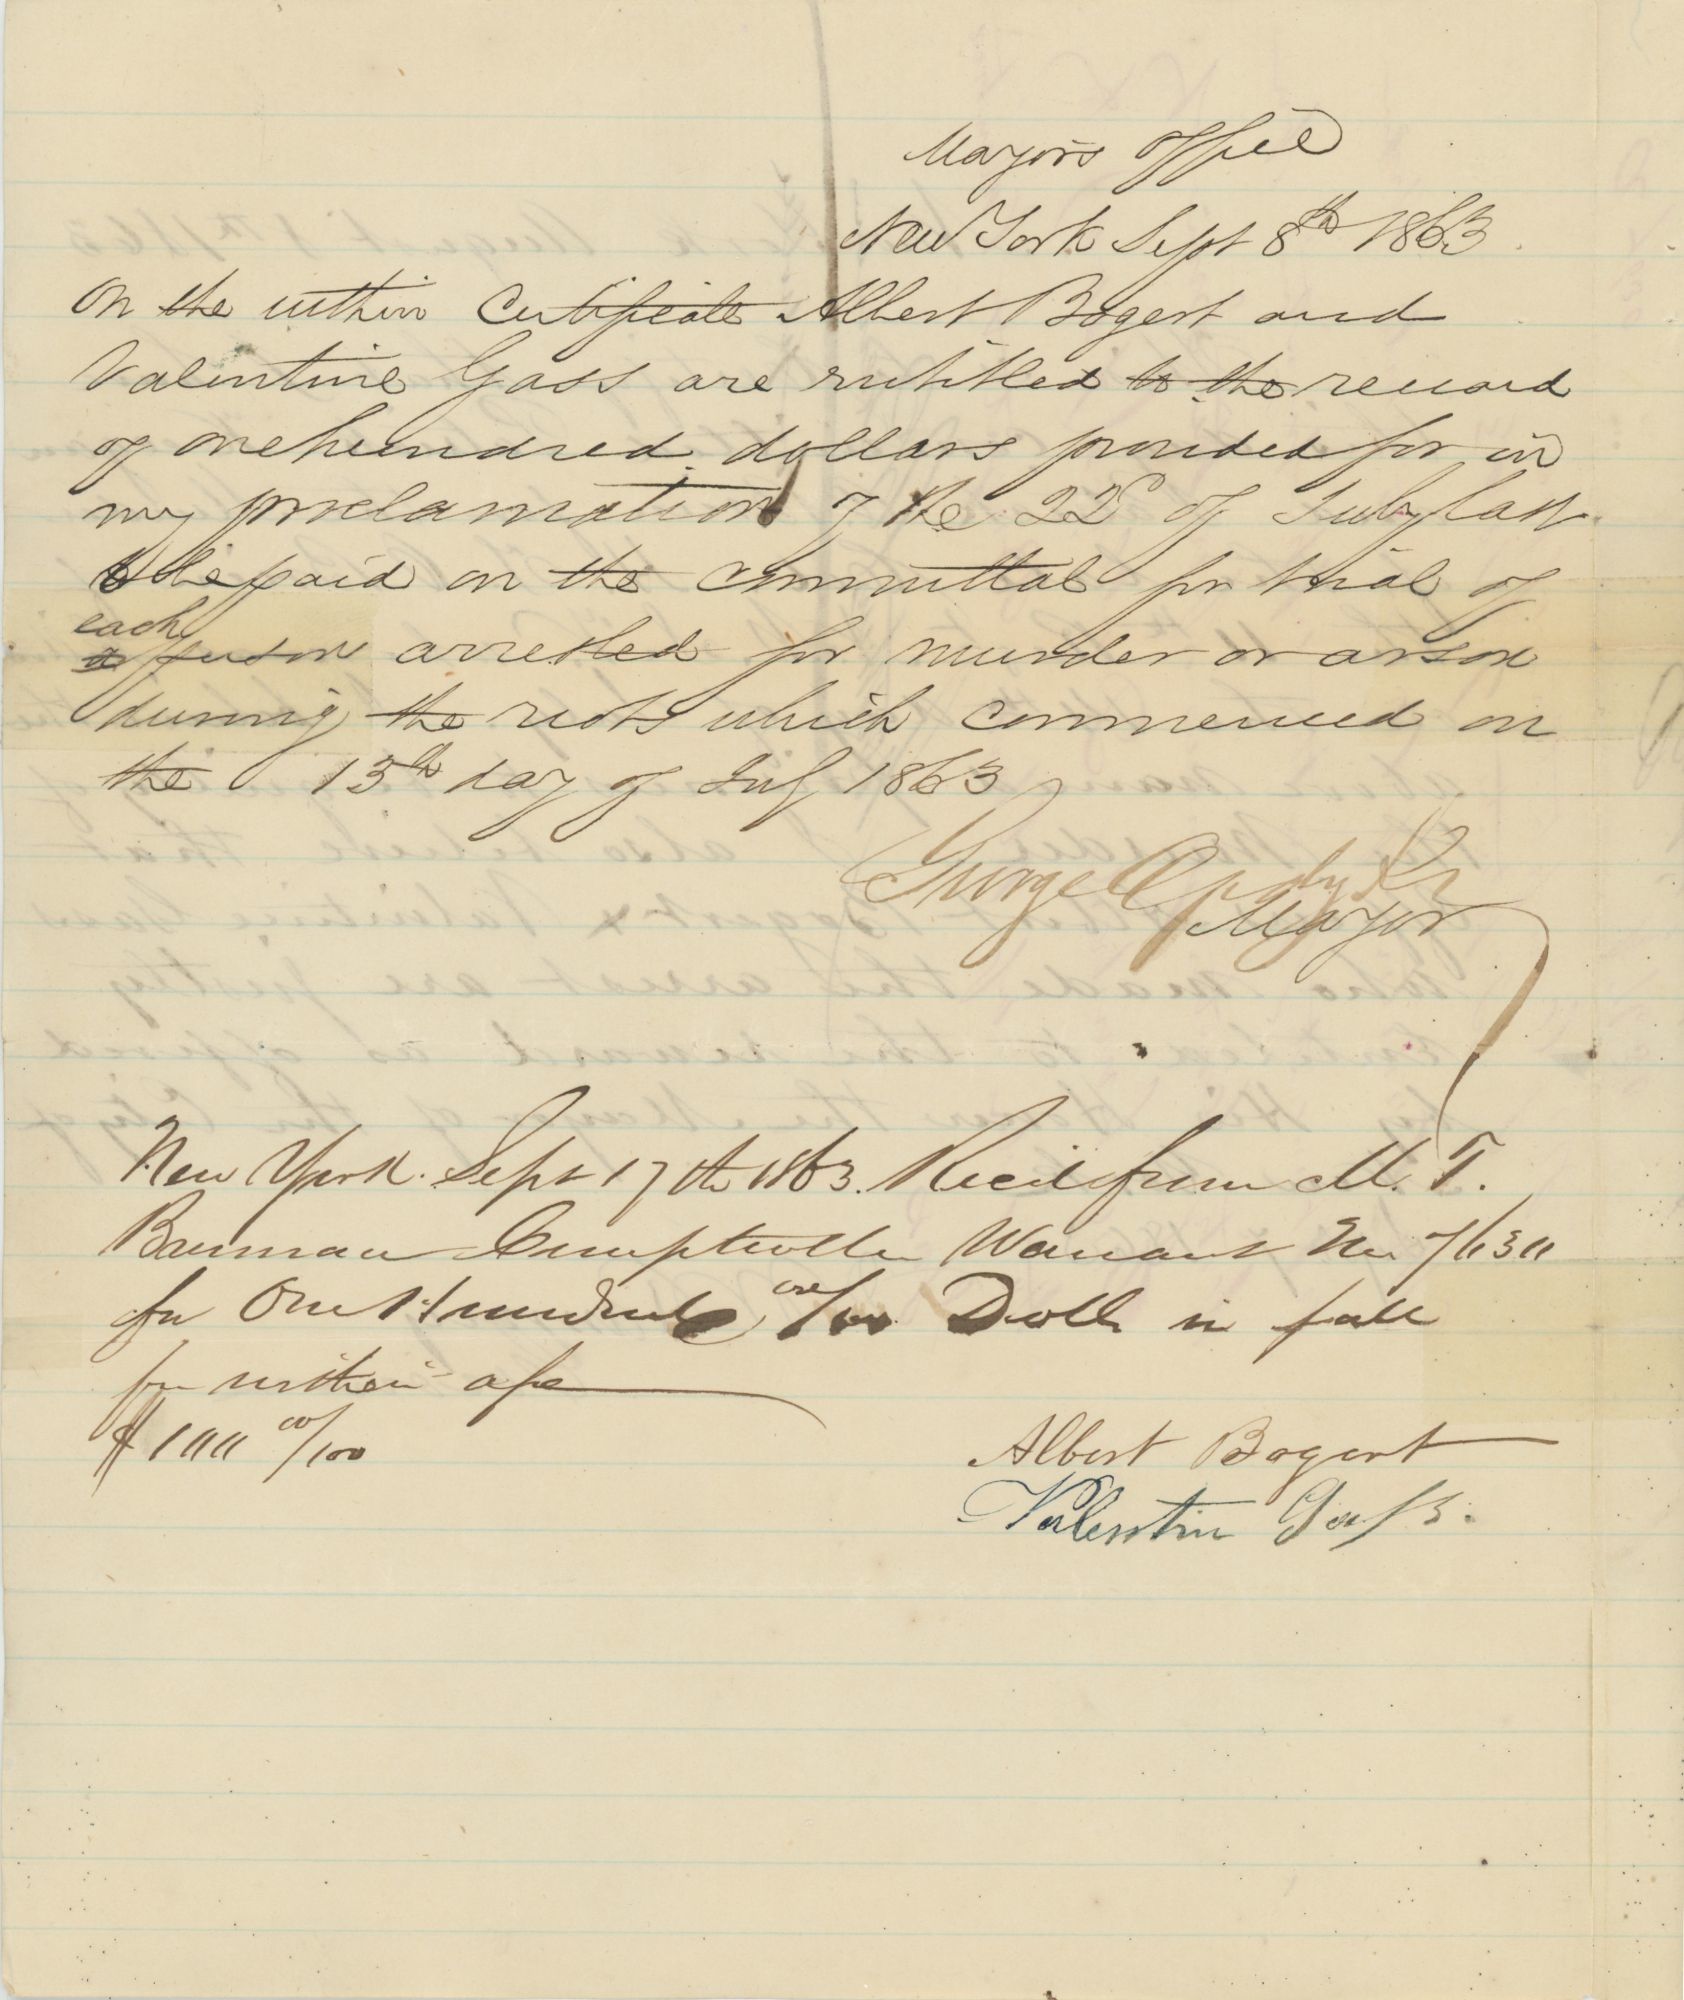 Mayor's Office
New York Sept 8th 1863
On the within Certificate Albert Bogert and
Valentine Gass are entitled to the reward
of one hundred dollars provided for in
my proclamation of the 22d of July last
to be paid on the committal for trial of
each
a person arrested for murder or arson
during the riots which commenced on
the 13th day of July 1863
George Opdyke
Mayor
New York. Sept 17th 1863. Recd from M. T.
Brennan Comptroller Warrant No
for One Hundred 00/100 Dolls in full
for within a/c
$100 00/100
Albert Bogert
Valentin Gass.